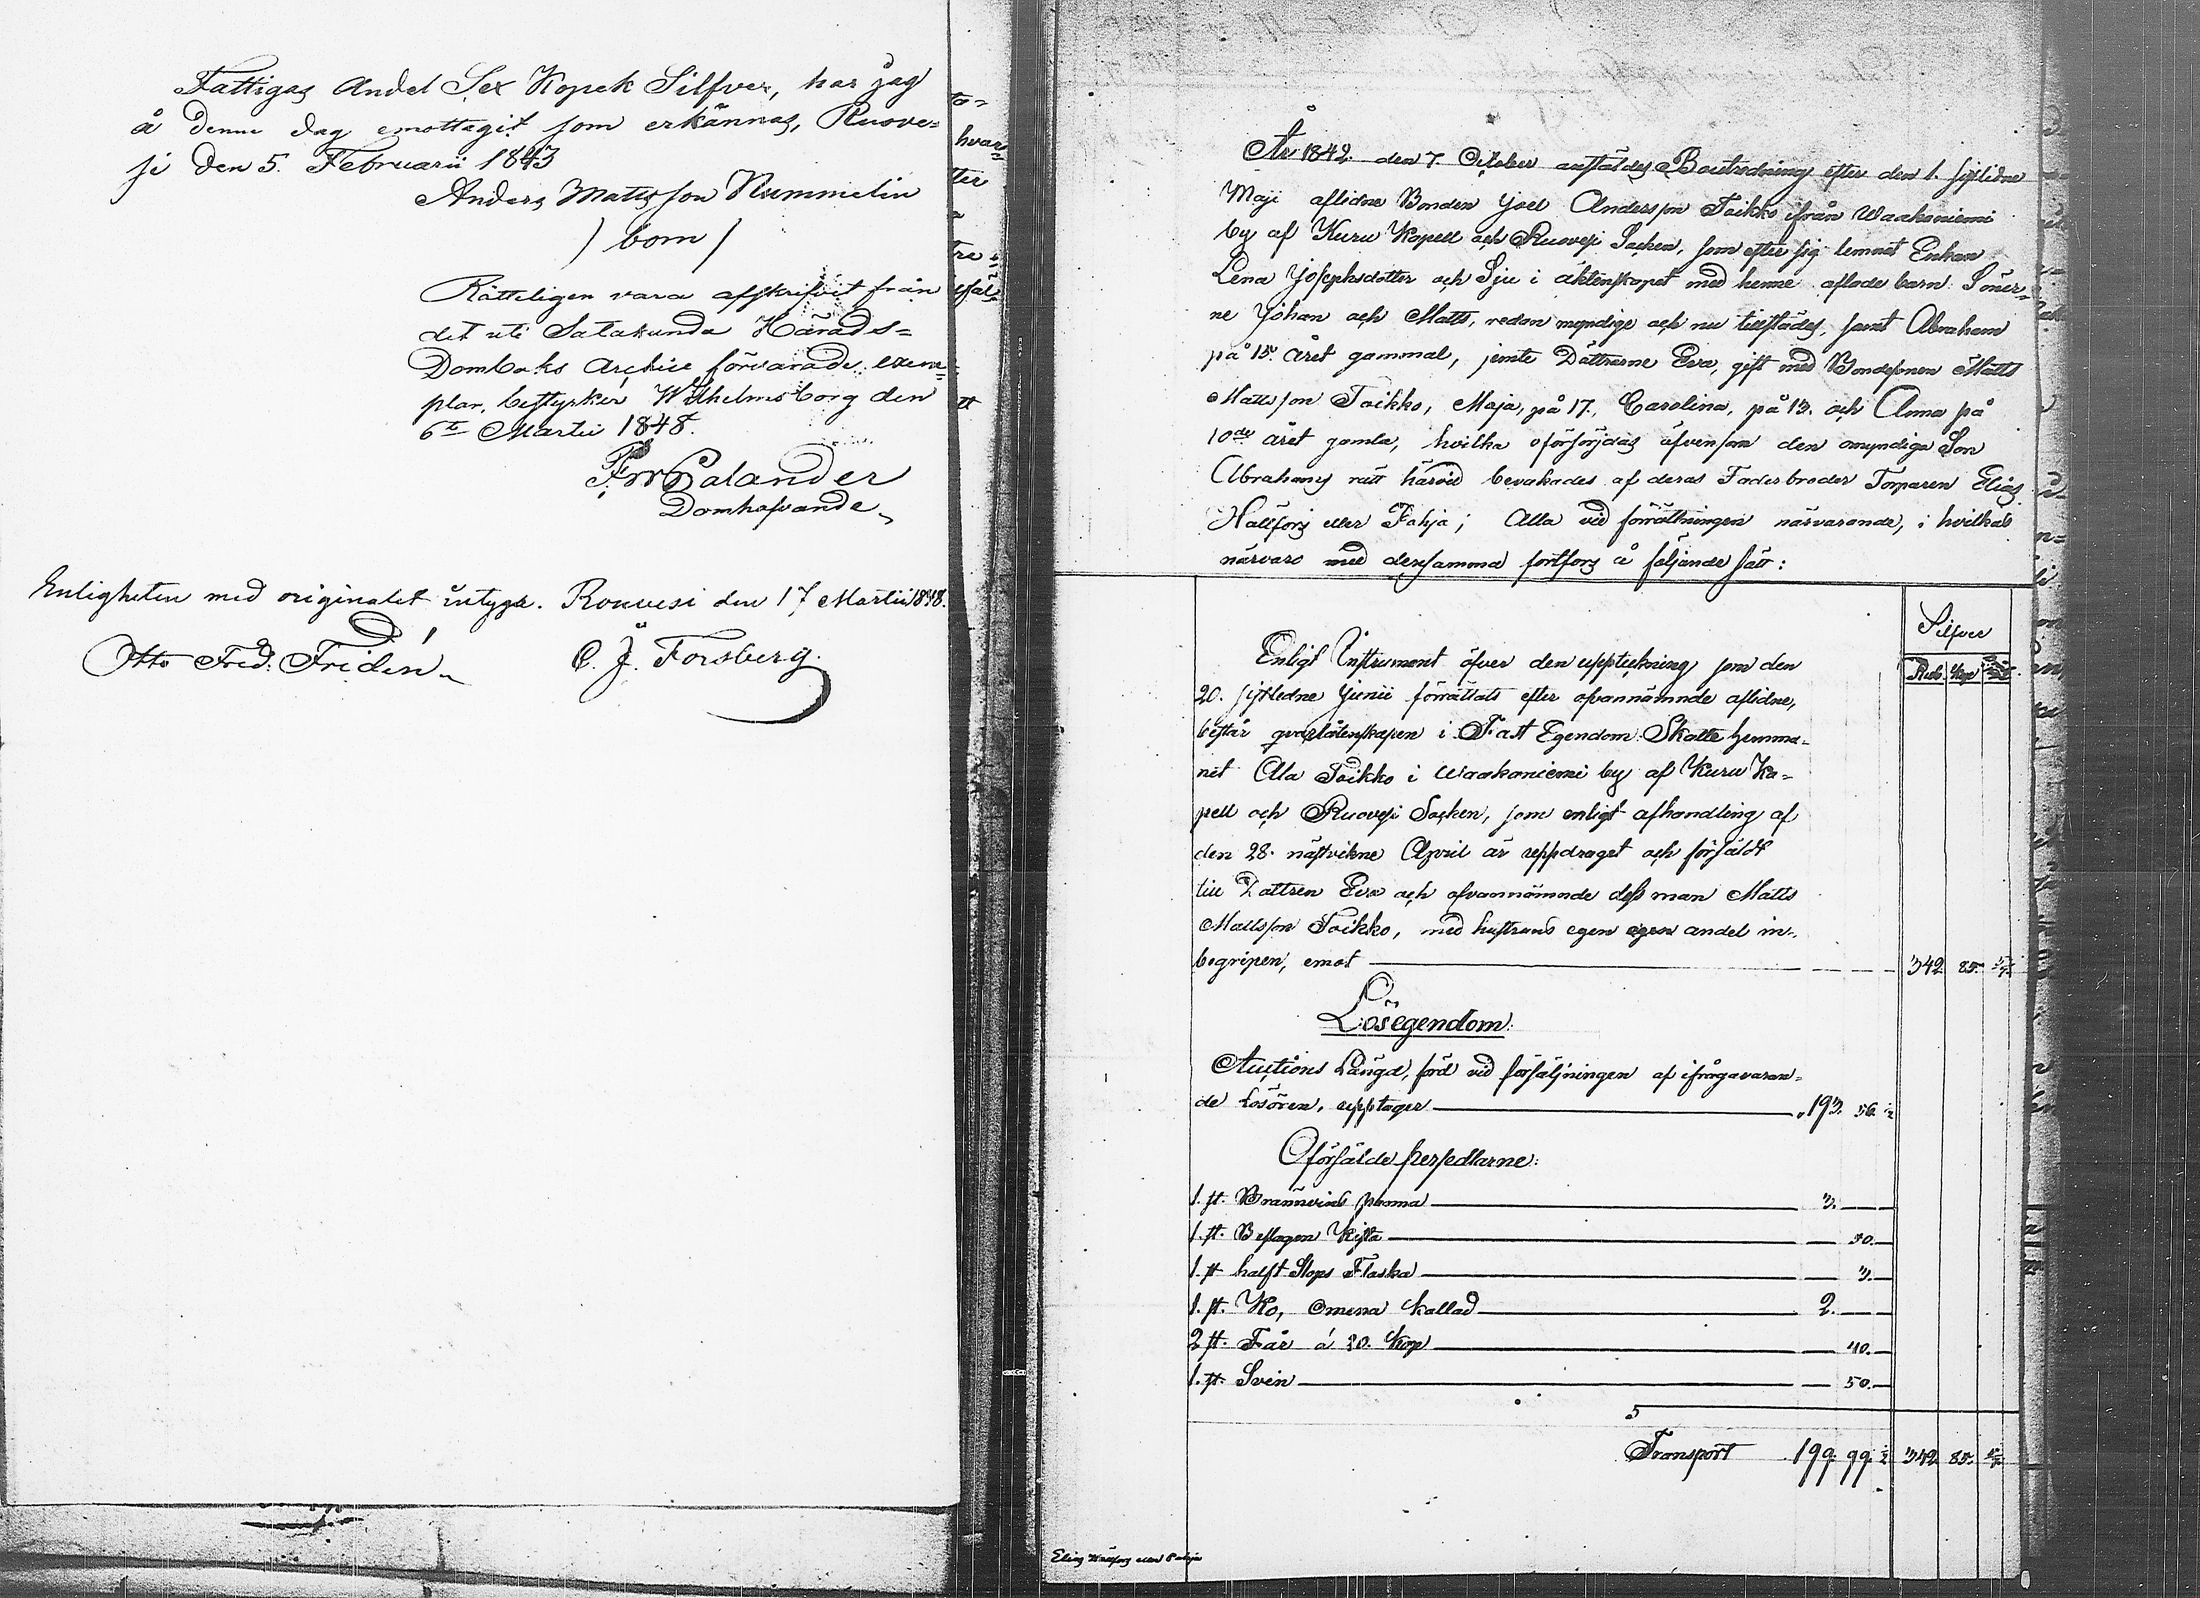 Fattigas Andel Sex Kopek Silfver, har jag
å denne dag emottagit som erkännas, Ruove=
si den 5. Februarii 1843
Anders Mattsson Nummelin
/ bom /
Rätteligen vara afskrifvit från
det uti Satakunda Härads=
Domboks Archive förvarade exem=
plar, bestyrker Wilhelmsborg den
6te Martii 1848.
Calander
Domhafvande
Enligheten med originalet intyga. Rouvesi den 17 Martii 1848.
Otto Fred: Fridén C. J. Forsberg.
År 1842. den 7. October anstäldes Boutredning efter den 1. sistledne
Maji aflidne Bonden Joel Andersson Toikko ifrån Waakaniemi
by af Kuru Kapell och Ruovesi Socken, som efter sig lemnat Enkan
Lena Josephsdotter och Sju i äktenskapet med henne aflade barn: Söner=
ne Johan och Matts, redan myndige och nu tillstädes, samt Abraham
på 15. året gammal, jemte Döttrarne Eva, gift med Bondesonen Matts
Mattsson Toikko, Maja, på 17., Carolina, på 13. och Anna på
10de året gamla, hvilka oförsörjdas äfvensom den omyndiga Son
Abrahams rätt härvid bevakades af deras Faderbroder Torparen Elias
Hällfors eller Pahja; Alla vid förrättningen närvarande, i hvilkas
närvaro med densamma fortfors å följande sätt:
Silfver
Rub. Kop
Enligt Instrument öfver den uppteckning som den
20. sistledne Junii förrättats efter ofvannämnde aflidne,
består qvarlåtenskapen i Fast Egendom: Skatte hemma-
net Ala Toikko i Waakaniemi by af Kuru Ka-
pell och Ruovesi Socken, som enligt afhandling af
den 28. nästvikne April är uppdraget och försåldt
till Dottren Eva och ofvannämnde dess man Matts
Mattsson Toikko, med hustruns egen egen andel in-
begripen, emot 342 85. 5/7
Lösegendom:
Auctions Längd, förd vid försäljningen af ifrågavaran=
de Lösören, upptager 193. 56. ½
Oförsålde persedlarne:
1. st. Brännvins panna 3.
1. st. Beslagen Kista 50.
1. st halft Stops Flaska 3.
1. st. Ko, Omena kallad 2.
2 st. Får á 20. Kop 40.
1. st. Svin 50.
Transport 199. 99. ½ 342 85. 5/7
Elias Hällfors eller Pahja